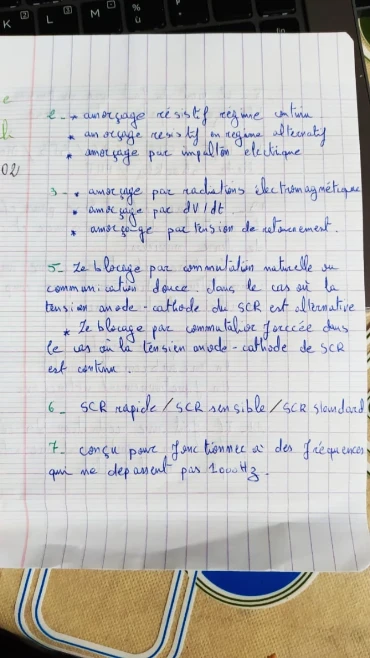 K L M %
ù
e
02
2 - * amorçage résistif régime continu
* amorçage resistif en régime alternatif
* amorçage par impulton electrique
3 - * amorçage par radiations électromagnétique
* amorçage par dV/dt.
* amorçange par tension de retournement.
5 - Le blocage par commutation naturelle ou
communication douce. dans le cas où la
tension anode-cathode du SCR est alternative
* Le blocage par commutation forccée dans
le cas où la tension anode-cathode de SCR
est continu.
6 - SCR rapide / SCR sensible / SCR standard
7 - conçu pour fonctionner à des fréquences
qui ne depassent pas 1000Hz.